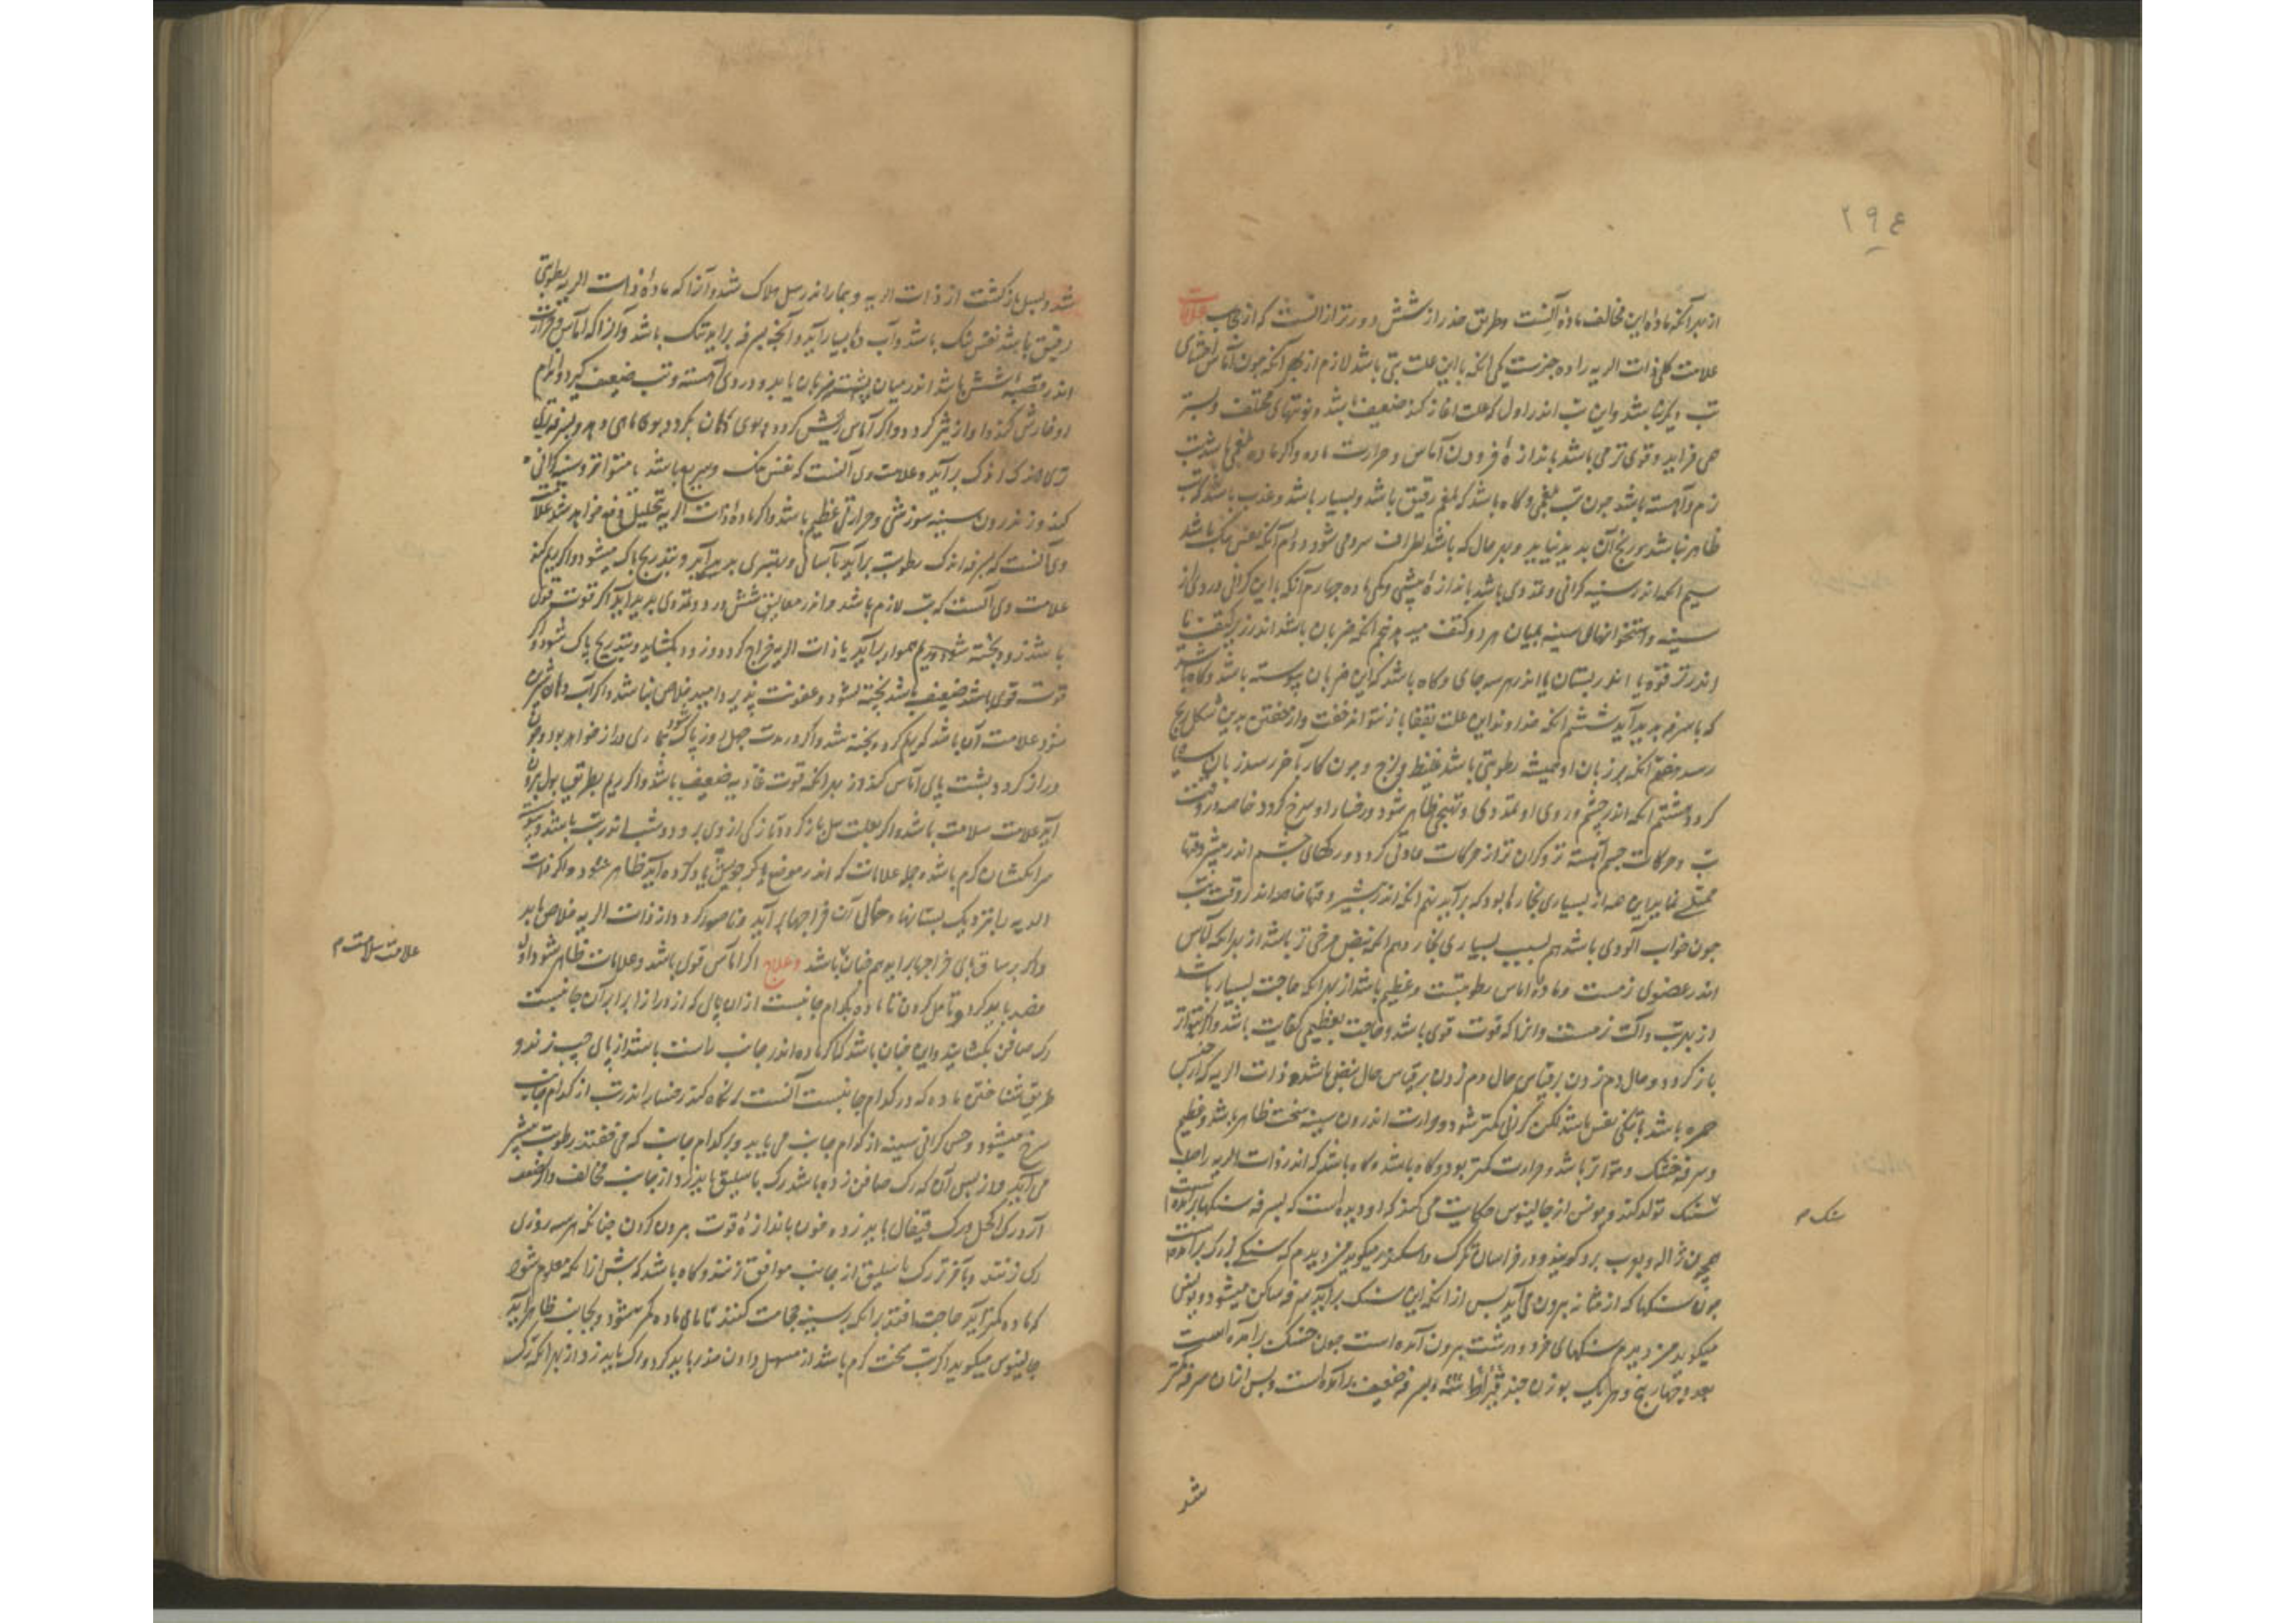 ۲۹٤
از بهر آنکه ماده این مخالف ماده آنست و طریق حذر از شش دورتر از آنست که از حجاب علامات
علامت کلی ذات الریه را ده چیزست یکی آنکه با این علت تبی باشد لازم از بهر آنکه چون آماس احشای
تب دیگر باشد و این تب اندر اول که علت آغاز کند ضعیف باشد و نوبتهای مختلف و بستر
همی فزاید و قوی تر می باشد باندازهٔ فزودن آماس و حرارت ماده و اگر ماده بلغمی باشد تب
نرم و آهسته باشد چون تب بلغمی و گاه باشد که بلغم رقیق باشد و بسیار باشد و عذب باشد که تب
ظاهر نباشد و رنج آن پدید نیاید و بهر حال که باشد اطراف سرد می شود دوم آنکه نفس تنگ باشد
سیم آنکه اندر سینه گرانی و تمددی باشد باندازهٔ بیشی و کمی ماده چهارم آنکه با این گرانی دردی از
سینه و استخوانهای سینه بمیان هر دو کتف میرسد پنجم آنکه ضربان باشد اندر زیر کتف یا
اندر ترقوه یا اندر پستان یا اندر هر سه جای و گاه باشد که این ضربان پیوسته باشد و گاه باشد
که با سرفه پدید آید ششم آنکه خداوند این علت بقفا باز نتواند خفت و از خفتن بدین شکل رنج
رسد هفتم آنکه بر زبان او همیشه رطوبتی باشد غلیظ و لزج و چون کار بآخر رسد زبان سیاه
گردد هشتم آنکه اندر چشم و روی او تمددی و تهیجی ظاهر شود و رخسار او سرخ گردد خاصه در وقت
تب و حرکات چشم آهسته تر و گران تر از حرکات عادتی گردد و رگهای چشم اندر بیشتر وقتها
ممتلی نماید این همه از بسیاری بخارها بود که برآید نهم آنکه اندر بیشتر وقتها خاصه اندر وقت تب
چون خواب آلودی باشد هم بسبب بسیاری بخار دهم آنکه نبض مرخی تر باشد از بهر آنکه آماس
اندر عضوی نرمست و مادهٔ آماس رطوبتست و عظیم باشد از بهر آنکه حاجت بسیار باشد
از بهر تب و آلت نرمست و آنرا که قوت قوی باشد و حاجت بعظیمی کفایت باشد و اگر نه متواتر
باز گردد و حال دم زدن بر قیاس حال دم زدن بر قیاس حال نبض باشد و ذات الریه که از جنس
حمره باشد با تنگی نفس باشد لکن گرانی کمتر شود و حرارت اندرون سینه سخت ظاهر باشد و عظیم
و سرفه خشک و متواتر باشد و حرارت کمتر بود و گاه باشد و گاه باشد که اندر ذات الریه راصلب
سنگ تولد کند و یونس از جالینوس حکایت می کند که او دیده است که بسرفه سنگها برآمده است
همچون ژاله و بعرب برد گویند و در خراسان تگرگ و اسکندر میگوید من دیدم که سنگی بزرگ برآمده است
چون سنگها که از مثانه بیرون می آید پس از آنکه این سنگ برآید سرفه ساکن میشود و یونس
میگوید من دیدم سنگهای خرد و درشت بیرون آمده است چون خسک برآمده است
بعدد چهار پنج و هر یک بوزن چند قیراط شته و بسرفه ضعیف برآمده است و پس از آن سرفه کمتر
شد
سنگ م
شد و بسل بازگشت از ذات الریه و بیمار اندر سل هلاک شد و آنرا که مادهٔ ذات الریه رطوبتی
رقیق باشد نفس تنگ باشد و آب دهان بسیار آید و آنچه بسرفه برآید تنک باشد و آنرا که آماس و حرارت
اندر قصبه شش باشد اندر میان پشت ضربان یابد و دردی آهسته و تب ضعیف گیرد و اندام
او خارش کند و آواز تیز گردد و اگر آماس ریش گردد و بوی دهان بگردد بوی ماهی دهد و بسرفه ریم
کند و ز اندرون سینه سوزشی و حرارتی عظیم باشد و اگر مادهٔ ذات الریه تحلیل دفع خواهد شد علامت
وی آنست که بسرفه اندک رطوبت برآید بآسانی و بهتری پدید آید و بتدریج پاک میشود و اگر ریم کند
علامت وی آنست که تب لازم باشد و اندر معالیق شش درد و تمددی پدید آید اگر قوت قوی
باشد زود پخته شود و ریم هموار برآید یا ذات الریه خراج گردد و زود بگشاید و بتدریج پاک شود و اگر
قوت قوی باشد ضعیف باشد پخته نشود و عفونت پذیرد امید خلاص نباشد و اگر آب دهان شیرین
شود علامت آن باشد که ریم گردد پخته شد و اگر در مدت چهل روز پاک نشود بیماری دراز خواهد بود و چون
دراز گردد پشت پای آماس کند از بهر آنکه قوت غاذیه ضعیف باشد و اگر ریم بطریق بول بیرون
آید علامت سلامت باشد و اگر بعلت سل باز گردد تازگی از وی برود و شب اندر تب باشد و پوست
سر انگشتان گرم باشد و جمله علامات که اندر موضع دیگر جویش یاد کرده آید ظاهر شود و اگر ذات
الریه را نزدیک پستانها و حوالی آن خراجها برآید و ناصور گردد از ذات الریه خلاص یابد
و اگر بر ساق پای خراجها برآید هم چنان باشد و علاج اگر آماس قوی باشد و علامات ظاهر شود اول
فصد باید کرد و تأمل کردن تا ماده بکدام جانبست از آن پای که از ورا زا برابر آن جانبست
رگ صافن بگشایند و این چنان باشد که اگر ماده اندر جانب راست باشد از پای چپ زنند و
طریق شناختن ماده که در کدام جانبست آنست که نگاه کند رخسار اندر تب از کدام جانب
سرخ میشود و حس گرانی سینه از کدام جانب می یابد و بر کدام جانب که می خفتند رطوبت بیشتر
می آید و از پس آن که رگ صافن زده باشد رگ باسلیق باید زد از جانب مخالف و اگر ضعف
آرد رگ اکحل و رگ قیفال باید زد و خون باندازهٔ قوت بیرون کردن چنانکه هر سه روزی
رگی زنند و بآخر رگ باسلیق از جانب موافق زنند و گاه باشد که پیش از آنکه معلوم شود
که ماده کمتر آید حاجت افتد بر آنکه بر سینه حجامت کنند تا مامی ماده کمتر شود و بجانب ظاهر آید
جالینوس میگوید اگر تب سخت گرم باشد از مسهل دادن حذر باید کرد و رگ باید زد از بهر آنکه رگ
علامت سلامت م